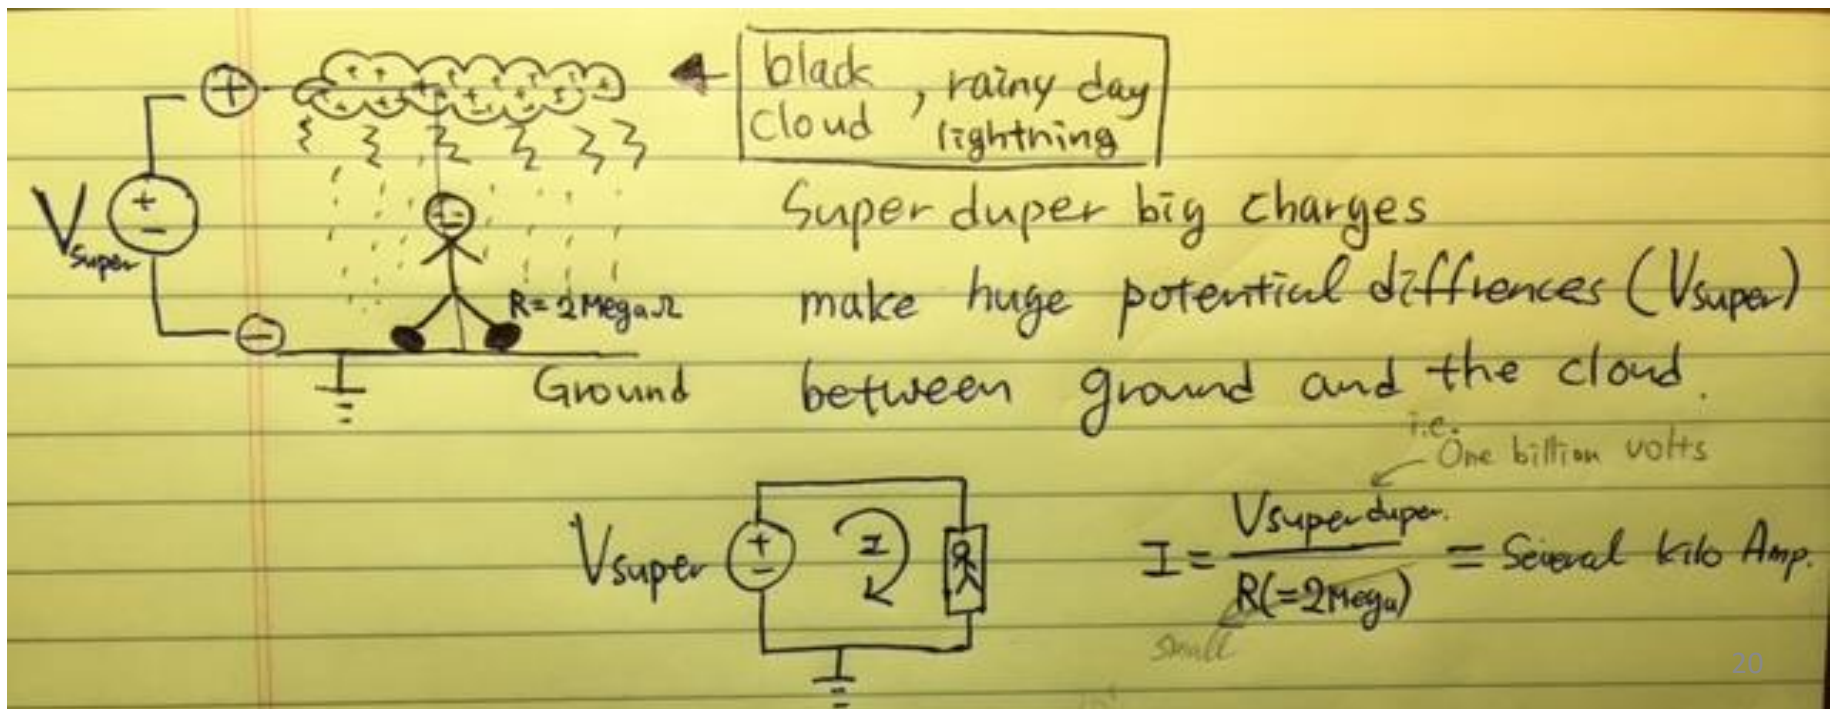 black
cloud , rainy day
lightning
V
super
+
-
R=2MegaΩ
Ground
Super duper big charges
make huge potential diffrences (Vsuper)
between ground and the cloud.
i.e.
One billion volts
Vsuper
+
-
I
I = Vsuperduper. / R(=2Mega) = Several kilo Amp.
small
20